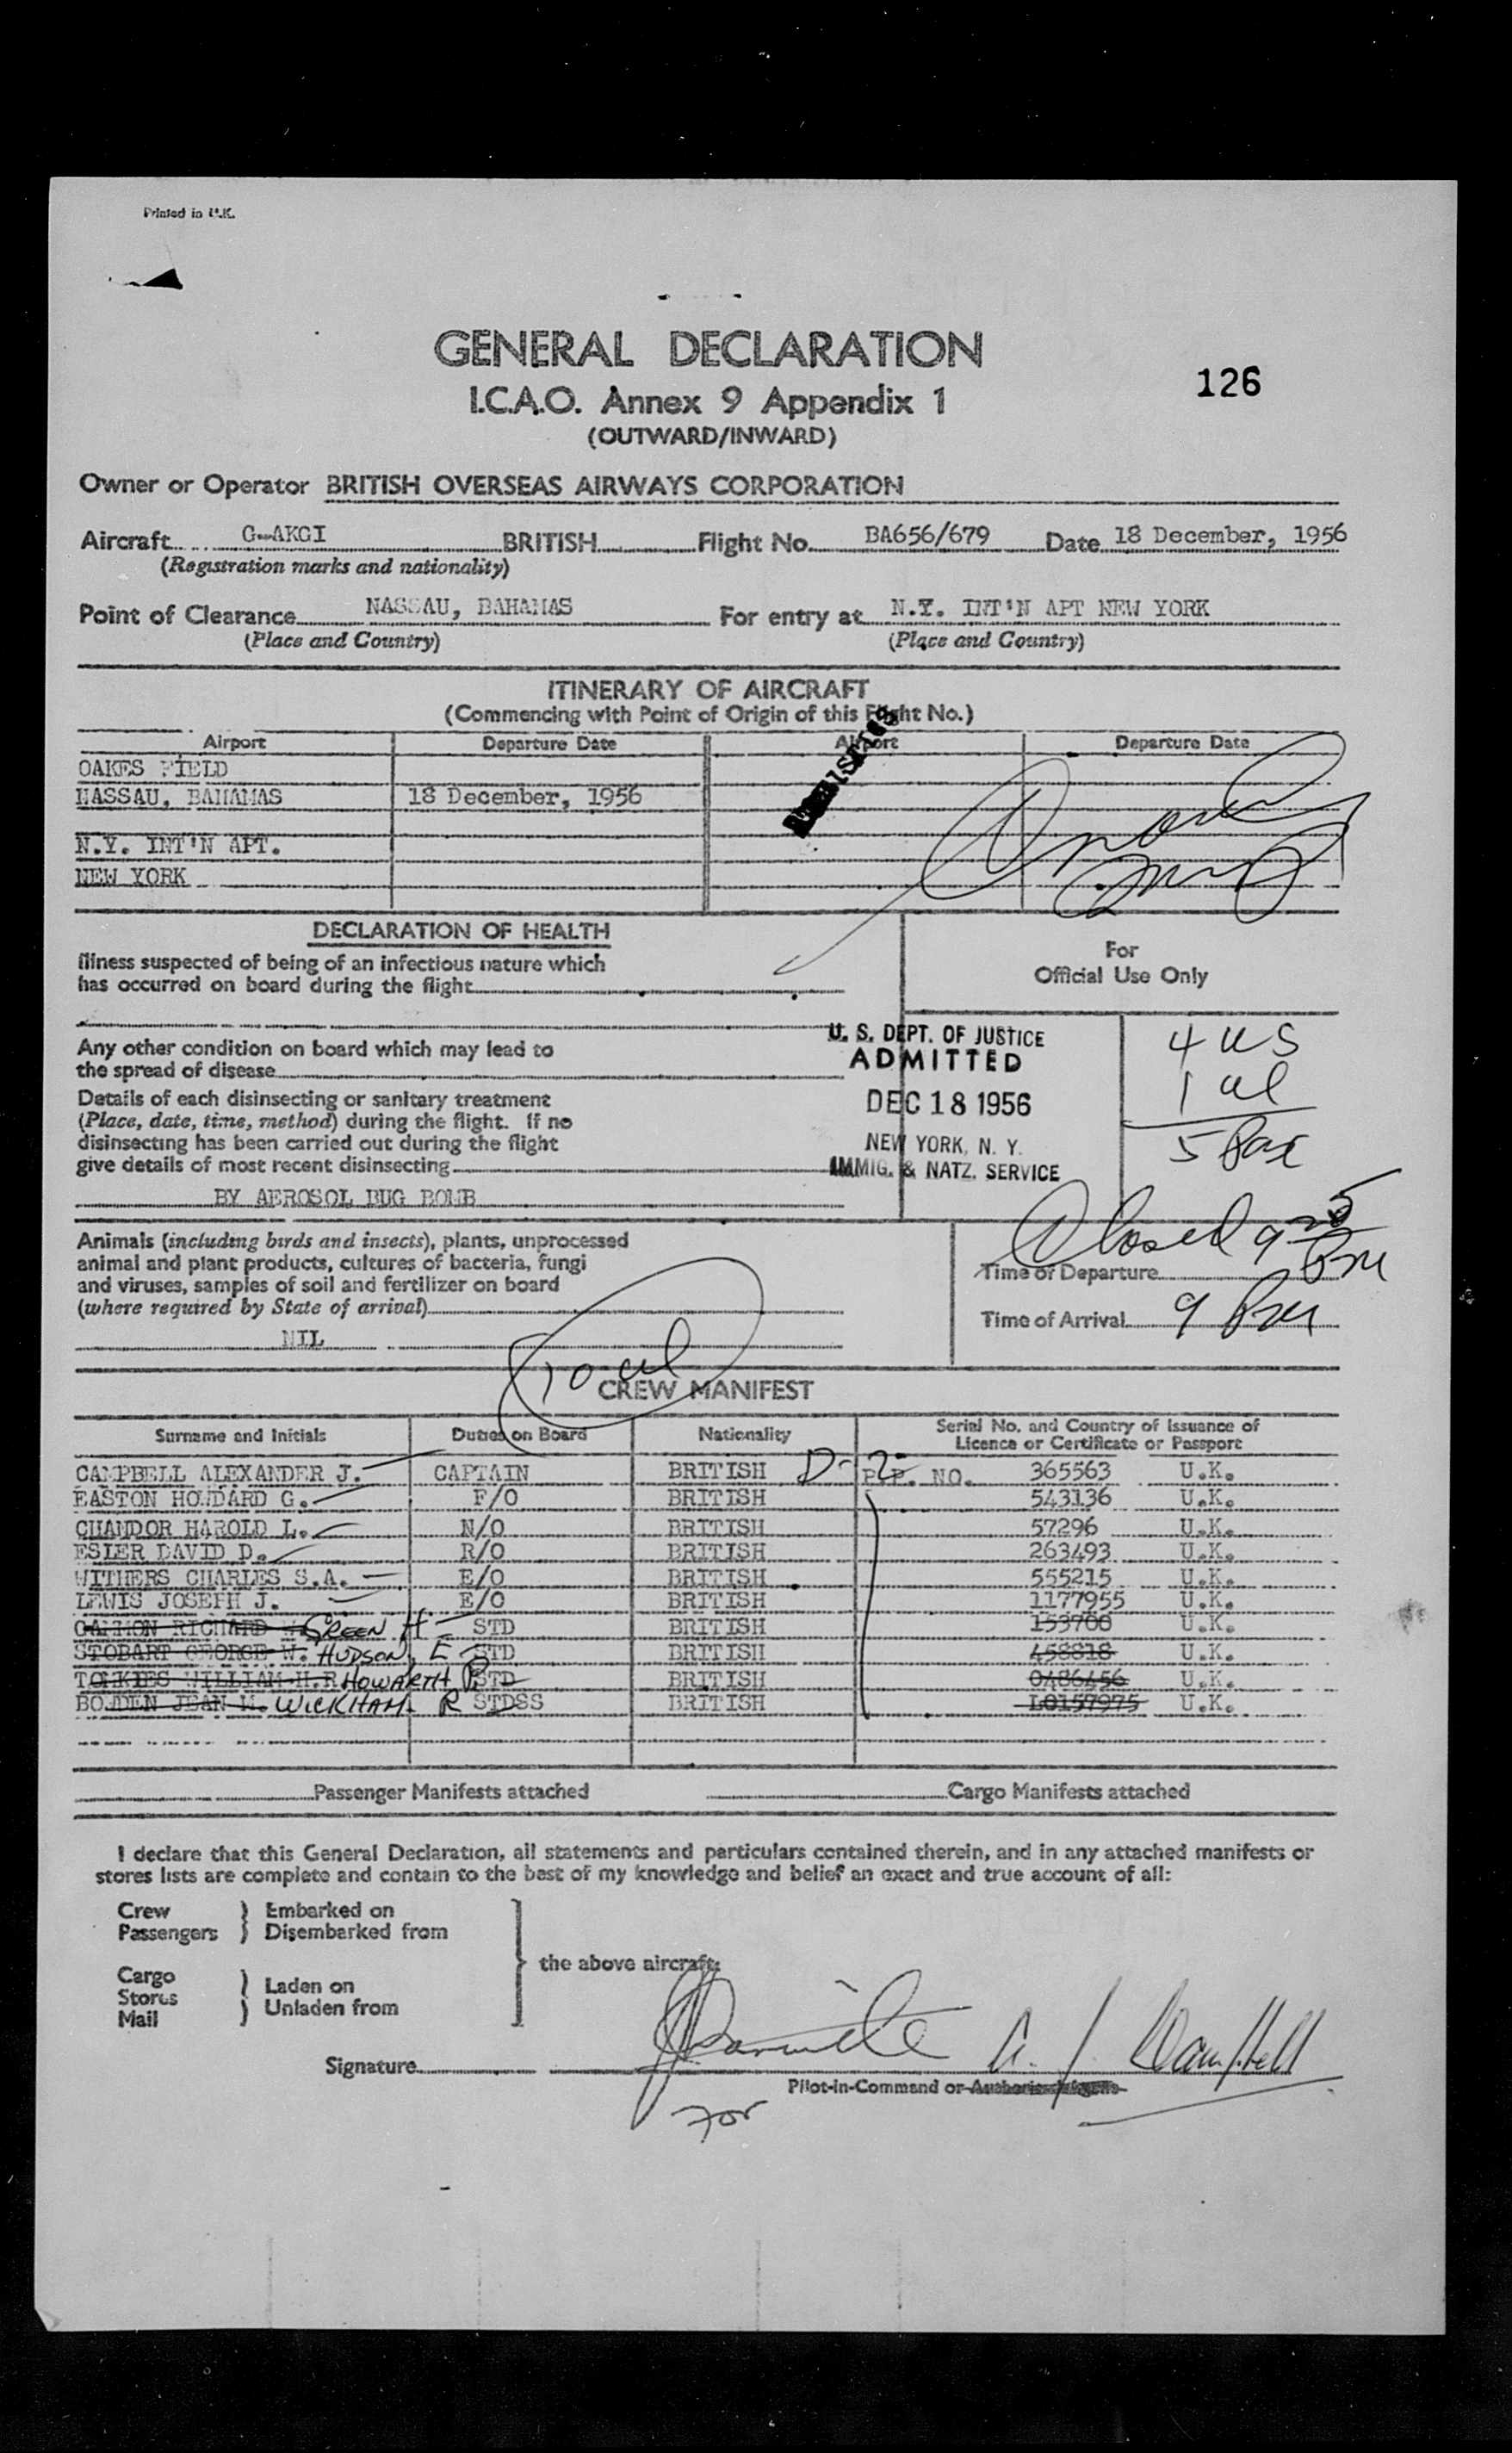 Printed in U.K.
GENERAL DECLARATION
126
I.C.A.O. Annex 9 Appendix 1
(OUTWARD/INWARD)
Owner or Operator BRITISH OVERSEAS AIRWAYS CORPORATION
Aircraft G-AKGI BRITISH Flight No. BA656/679 Date 18 December, 1956
(Registration marks and nationality)
Point of Clearance NASSAU, BAHAMAS For entry at N.Y. INT'N APT NEW YORK
(Place and Country) (Place and Country)
ITINERARY OF AIRCRAFT
(Commencing with Point of Origin of this Flight No.)
Airport Departure Date Airport Departure Date
OAKES FIELD
NASSAU, BAHAMAS 18 December, 1956
N.Y. INT'N APT.
NEW YORK
DECLARATION OF HEALTH
For
Official Use Only
Illness suspected of being of an infectious nature which
has occurred on board during the flight
U. S. DEPT. OF JUSTICE
ADMITTED
DEC 18 1956
NEW YORK, N. Y.
IMMIG. & NATZ. SERVICE
4 US
1 al
5 Pax
Any other condition on board which may lead to
the spread of disease
Details of each disinsecting or sanitary treatment
(Place, date, time, method) during the flight. If no
disinsecting has been carried out during the flight
give details of most recent disinsecting
BY AEROSOL BUG BOMB
Animals (including birds and insects), plants, unprocessed
animal and plant products, cultures of bacteria, fungi
and viruses, samples of soil and fertilizer on board
(where required by State of arrival)
NIL
Closed 9 25 PM
Time of Departure
Time of Arrival 9 PM
10 al
CREW MANIFEST
Surname and Initials Duties on Board Nationality Serial No. and Country of Issuance of
Licence or Certificate or Passport
CAMPBELL ALEXANDER J. CAPTAIN BRITISH D-2 P.P. NO. 365563 U.K.
EASTON HOWDARD G. F/O BRITISH 543136 U.K.
CHANDOR HAROLD L. N/O BRITISH 57296 U.K.
ESLER DAVID D. R/O BRITISH 263493 U.K.
WITHERS CHARLES S.A. E/O BRITISH 555215 U.K.
LEWIS JOSEPH J. E/O BRITISH 1177955 U.K.
RICHARD GREEN H STD BRITISH 153700 U.K.
STOBART GEORGE W. HUDSON, E STD BRITISH 458818 U.K.
WILLIAM H.R HOWARTH P STD BRITISH 0486456 U.K.
BOWDEN JEAN M. WICKHAM R STDSS BRITISH L0157975 U.K.
Passenger Manifests attached Cargo Manifests attached
I declare that this General Declaration, all statements and particulars contained therein, and in any attached manifests or
stores lists are complete and contain to the best of my knowledge and belief an exact and true account of all:
Crew
Passengers
Embarked on
Disembarked from
the above aircraft.
Cargo
Stores
Mail
Laden on
Unladen from
Signature A. J. Campbell
Pilot-in-Command or
For